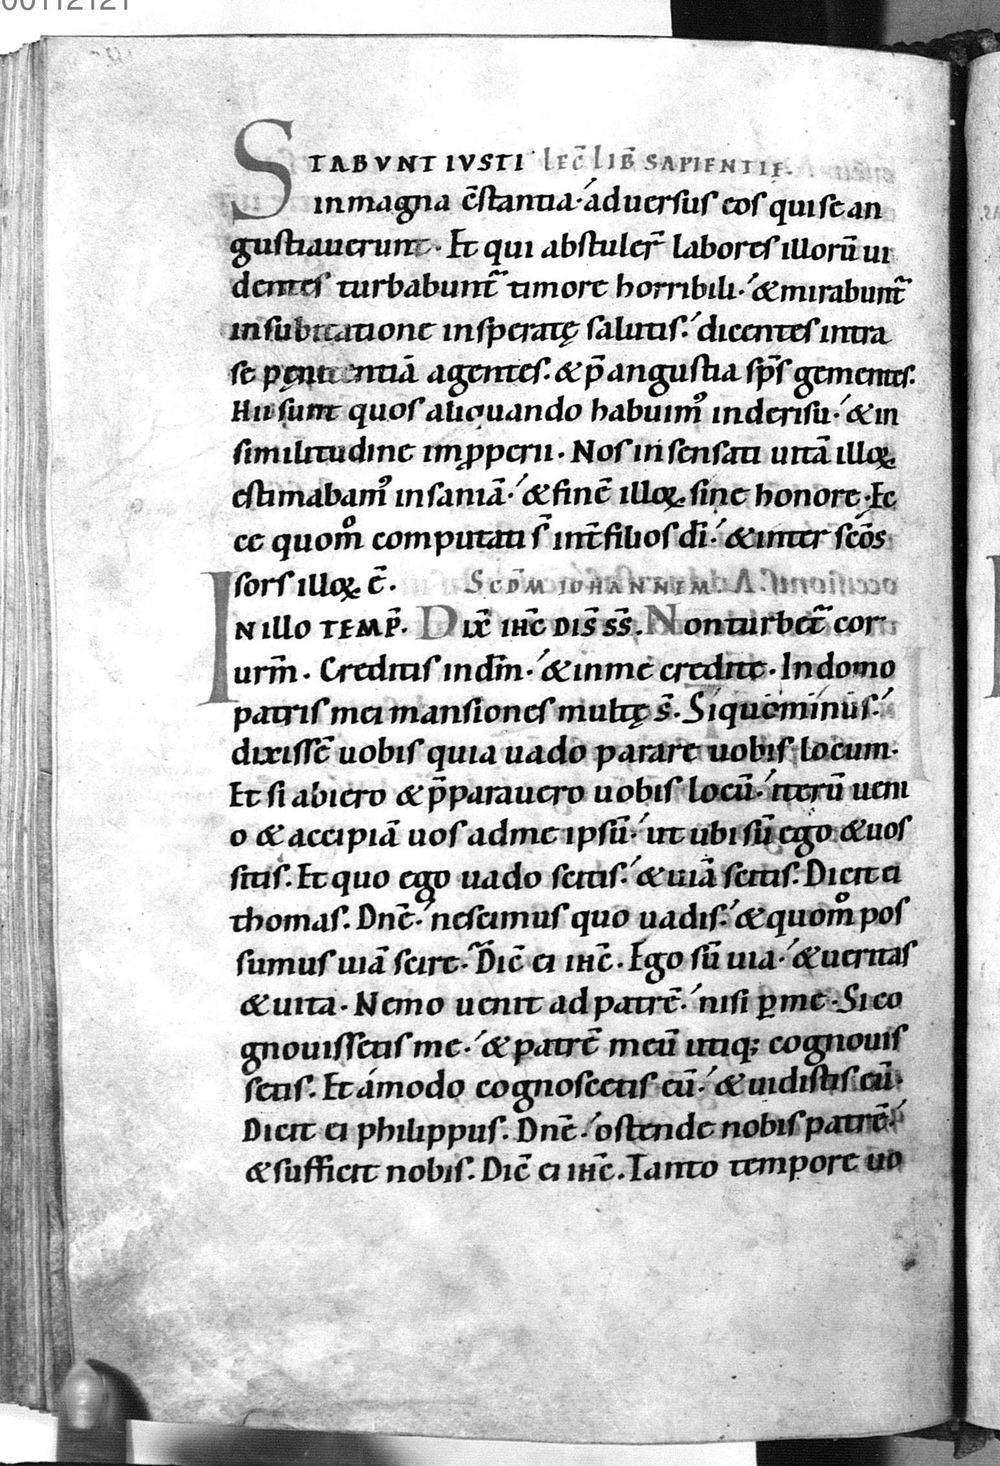 00112121
STABVNT IVSTI LEC̄ LIB̄ SAPIENTIE.
in magna c̄stantia· aduersus eos qui se an
gustiauerunt· Et qui abstuler̄ labores illorū ui
dentes turbabunt̄ timore horribili· & mirabunt̄
in subitatione insperatę salutis· dicentes intra
se pęnitentiā agentes· & p̄ angustia sp̄s gementes.
Hii sunt quos aliquando habuim᷒ in derisu· & in
similitudine improperii· Nos insensati uitā illoꝝ
estimabam᷒ insaniā· & finē illoꝝ sine honore· Ec
ce quom̊ computati s̄ int̄ filios dī· & inter sc̄os
sors illoꝝ ē. SCD̄M IOHANNEM.
IN ILLO TEMP̄. DIX̄ IHC̄ DIS̄ SS̄. Non turbet̄ cor
urm̄· Creditis in dm̄· & in me credite· In domo
patris mei mansiones multę s̄· Si quo minus·
dixissē uobis quia uado parare uobis locum·
Et si abiero & p̄parauero uobis locū· iterū ueni
o & accipiā uos ad me ipsū· ut ubi sū ego & uos
sitis. Et quo ego uado scitis· & uiā scitis. Dicit ei
thomas. Dnē· nescimus quo uadis· & quom̊ pos
sumus uiā scire· Dic̄ ei ihc̄. Ego sū uia· & ueritas
& uita· Nemo uenit ad patrē· nisi ꝑ me· Si co
gnouissetis me· & patrē meū utiq; cognouis
setis. Et ámodo cognoscetis eū· & uidistis eū·
Dicit ei philippus. Dnē· ostende nobis patrē·
& sufficit nobis. Dic̄ ei ihc̄. Tanto tempore uo